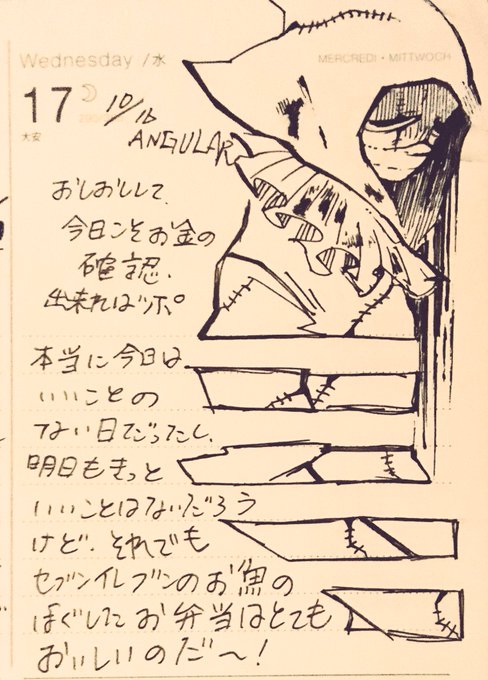 Wednesday /水
MERCREDI・MITTWOCH
17
大安
10/16
ANGULAR
おしおしして、
今日こそお金の
確認、
出来ればツボ。
本当に今日は
いいことの
ない日だったし、
明日もきっと
いいことはないだろう
けど、それでも
セブンイレブンのお魚の
ほぐしたお弁当はとても
おいしいのだ〜!